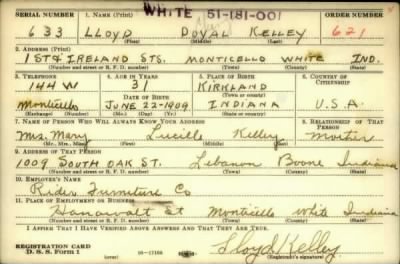 WHITE 51-181-001
SERIAL NUMBER 1. NAME (Print) ORDER NUMBER
633 LLOYD DOVAL KELLEY 621
(First) (Middle) (Last)
2. ADDRESS (Print)
1ST & IRELAND STS. MONTICELLO WHITE IND.
(Number and street or R. F. D. number) (Town) (County) (State)
3. TELEPHONE 4. AGE IN YEARS 5. PLACE OF BIRTH 6. COUNTRY OF CITIZENSHIP
144W 31 KIRKLAND
DATE OF BIRTH (Town or county)
Monticello JUNE 22-1909 INDIANA U.S.A.
(Exchange) (Number) (Mo.) (Day) (Yr.) (State or country)
7. NAME OF PERSON WHO WILL ALWAYS KNOW YOUR ADDRESS 8. RELATIONSHIP OF THAT PERSON
Mrs. Mary Lucille Kelley Mother
(Mr., Mrs., Miss) (First) (Middle) (Last)
9. ADDRESS OF THAT PERSON
1009 SOUTH OAK ST. Lebanon Boone Indiana
(Number and street or R. F. D. number) (Town) (County) (State)
10. EMPLOYER'S NAME
Rider Furniture Co
11. PLACE OF EMPLOYMENT OR BUSINESS
Hanawalt St Monticello White Indiana
(Number and street or R. F. D. number) (Town) (County) (State)
I AFFIRM THAT I HAVE VERIFIED ABOVE ANSWERS AND THAT THEY ARE TRUE.
REGISTRATION CARD
D. S. S. Form 1 Lloyd Kelley
(Registrant's signature)